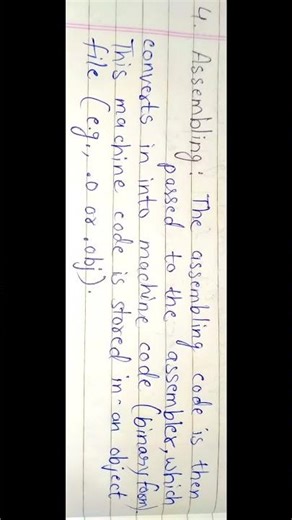 4. Assembling: The assembling code is then
passed to the assembler, which
converts in into machine code (binary form)
This machine code is stored in an object
file (e.g., .o or .obj).